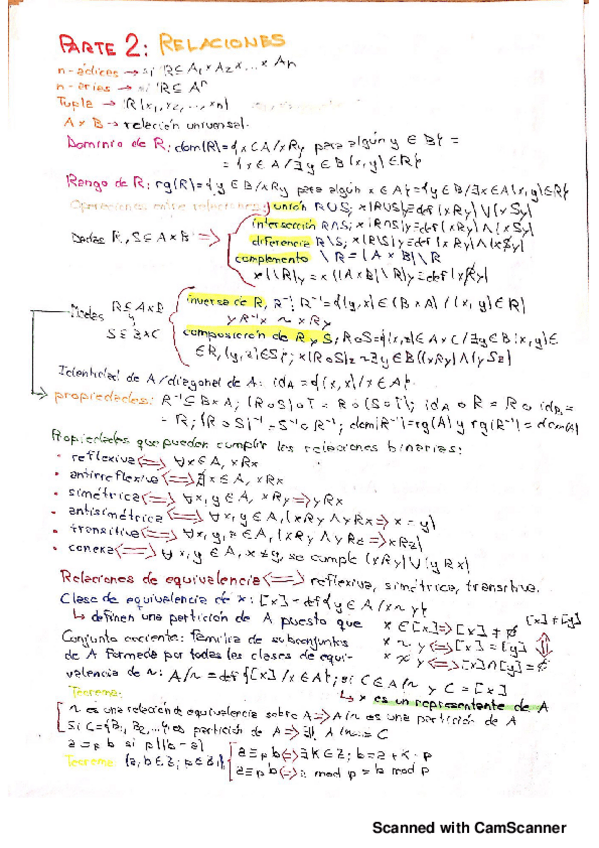 PARTE 2: RELACIONES
n-ádicas → si R⊆A₁×A₂×...×Aₙ
n-arias → si R⊆Aⁿ
Tupla → R(x₁,x₂,...,xₙ)
A×B → relación universal.
Dominio de R: dom(R)={x∈A/xRy para algún y∈B} =
= {x∈A/∃y∈B(x,y)∈R}
Rango de R: rg(R)={y∈B/xRy para algún x∈A}={y∈B/∃x∈A(x,y)∈R}
Operaciones entre relaciones: unión R∪S; x(R∪S)y=def(xRy)∨(xSy)
intersección R∩S; x(R∩S)y=def(xRy)∧(xSy)
Dadas R,S⊆A×B ⇒
diferencia R\S; x(R\S)y=def(xRy)∧(x$y)
complemento \R=(A×B)\R
x(\R)y=x((A×B)\R)y=def(x̸Ry)
inversa de R, R⁻¹; R⁻¹={(y,x)∈(B×A)/(x,y)∈R}
R⊆A×B
yR⁻¹x ~ xRy
S⊆B×C
composición de R y S, R∘S={(x,z)∈A×C/∃y∈B(x,y)∈
∈R,(y,z)∈S}; x(R∘S)z~∃y∈B((xRy)∧(ySz)
Identidad de A/diagonal de A: id_A={(x,x)/x∈A}.
propiedades: R⁻¹⊆B×A; (R∘S)∘T=R∘(S∘T); id_A∘R=R∘id_B=
=R; (R∘S)⁻¹=S⁻¹∘R⁻¹; dom(R⁻¹)=rg(R) y rg(R⁻¹)=dom(R)
Propiedades que pueden cumplir las relaciones binarias:
• reflexiva ⟺ ∀x∈A, xRx
• antirreflexiva ⟺ ∄x∈A, xRx
• simétrica ⟺ ∀x,y∈A, xRy ⇒ yRx
• antisimétrica ⟺ ∀x,y∈A, (xRy∧yRx ⇒ x=y)
• transitiva ⟺ ∀x,y,z∈A, (xRy∧yRz ⇒ xRz)
• conexa ⟺ ∀x,y∈A, x≠y, se cumple (xRy)∨(yRx)
Relaciones de equivalencia ⟺ reflexiva, simétrica, transitiva.
Clase de equivalencia de x: [x]=def{y∈A/x~y}
↳ definen una partición de A puesto que x∈[x] ⇒ [x]≠∅ [x]≠[y]
Conjunto cociente: familia de subconjuntos x~y ⟺ [x]=[y] ⇕
de A formada por todas las clases de equi- x≁y ⟺ [x]∩[y]=∅
valencia de ~: A/~=def{[x]/x∈A}; si C∈A/~ y C=[x]
↳ x es un representante de A
Teorema:
~ es una relación de equivalencia sobre A ⇒ A/~ es una partición de A
Si C={B₁,B₂,...} es partición de A ⇒ ∃ A/~=C
a≡ₚb si p|(b-a)
Teorema: (a,b∈Z; p∈Z₁)
a≡ₚb ⟺ ∃k∈Z; b=a+k·p
a≡ₚb ⟺ a mod p = b mod p
Scanned with CamScanner